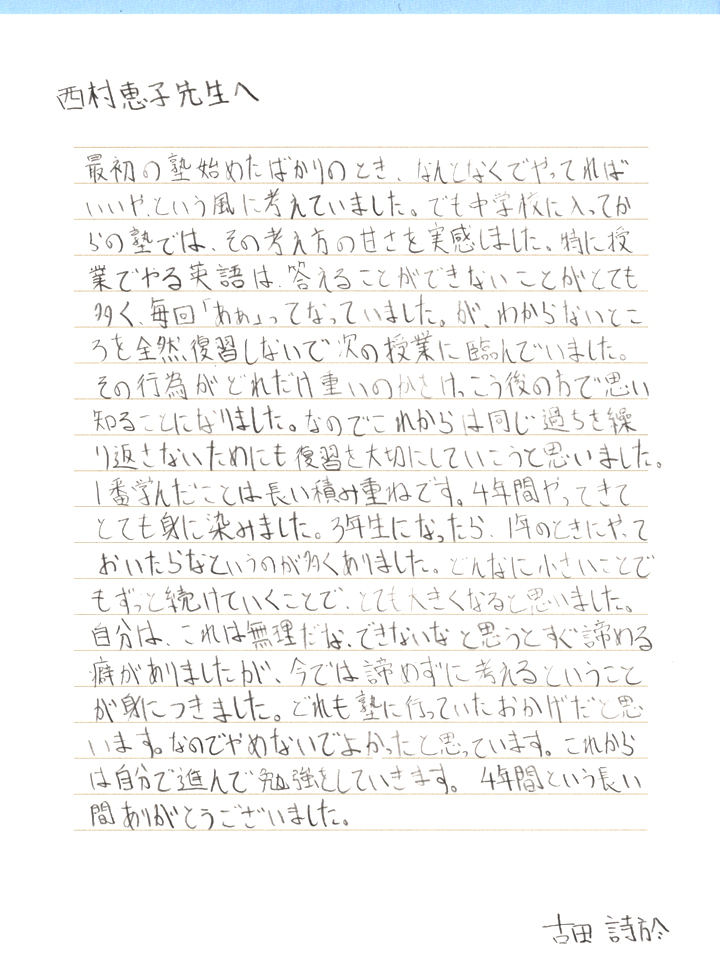 西村恵子先生へ
最初の塾始めたばかりのとき、なんとなくでやってれば
いいや、という風に考えていました。でも中学校に入ってか
らの塾では、その考え方の甘さを実感しました。特に授
業でやる英語は、答えることができないことがとても
多く、毎回「あぁ」ってなっていました。が、わからないとこ
ろを全然復習しないで次の授業に臨んでいました。
その行為がどれだけ重いのかさけっこう後の方で思い
知ることになりました。なのでこれからは同じ過ちを繰
り返さないためにも復習を大切にしていこうと思いました。
1番学んだことは長い積み重ねです。4年間やってきて
とても身に染みました。3年生になったら、1年のときにやって
おいたらなというのが多くありました。どんなに小さいことで
もずっと続けていくことで、とても大きくなると思いました。
自分は、これは無理だな、できないなと思うとすぐ諦める
癖がありましたが、今では諦めずに考えるということ
が身につきました。どれも塾に行っていたおかげだと思
います。なのでやめないでよかったと思っています。これから
は自分で進んで勉強をしていきます。 4年間という長い
間ありがとうございました。
古田 詩於